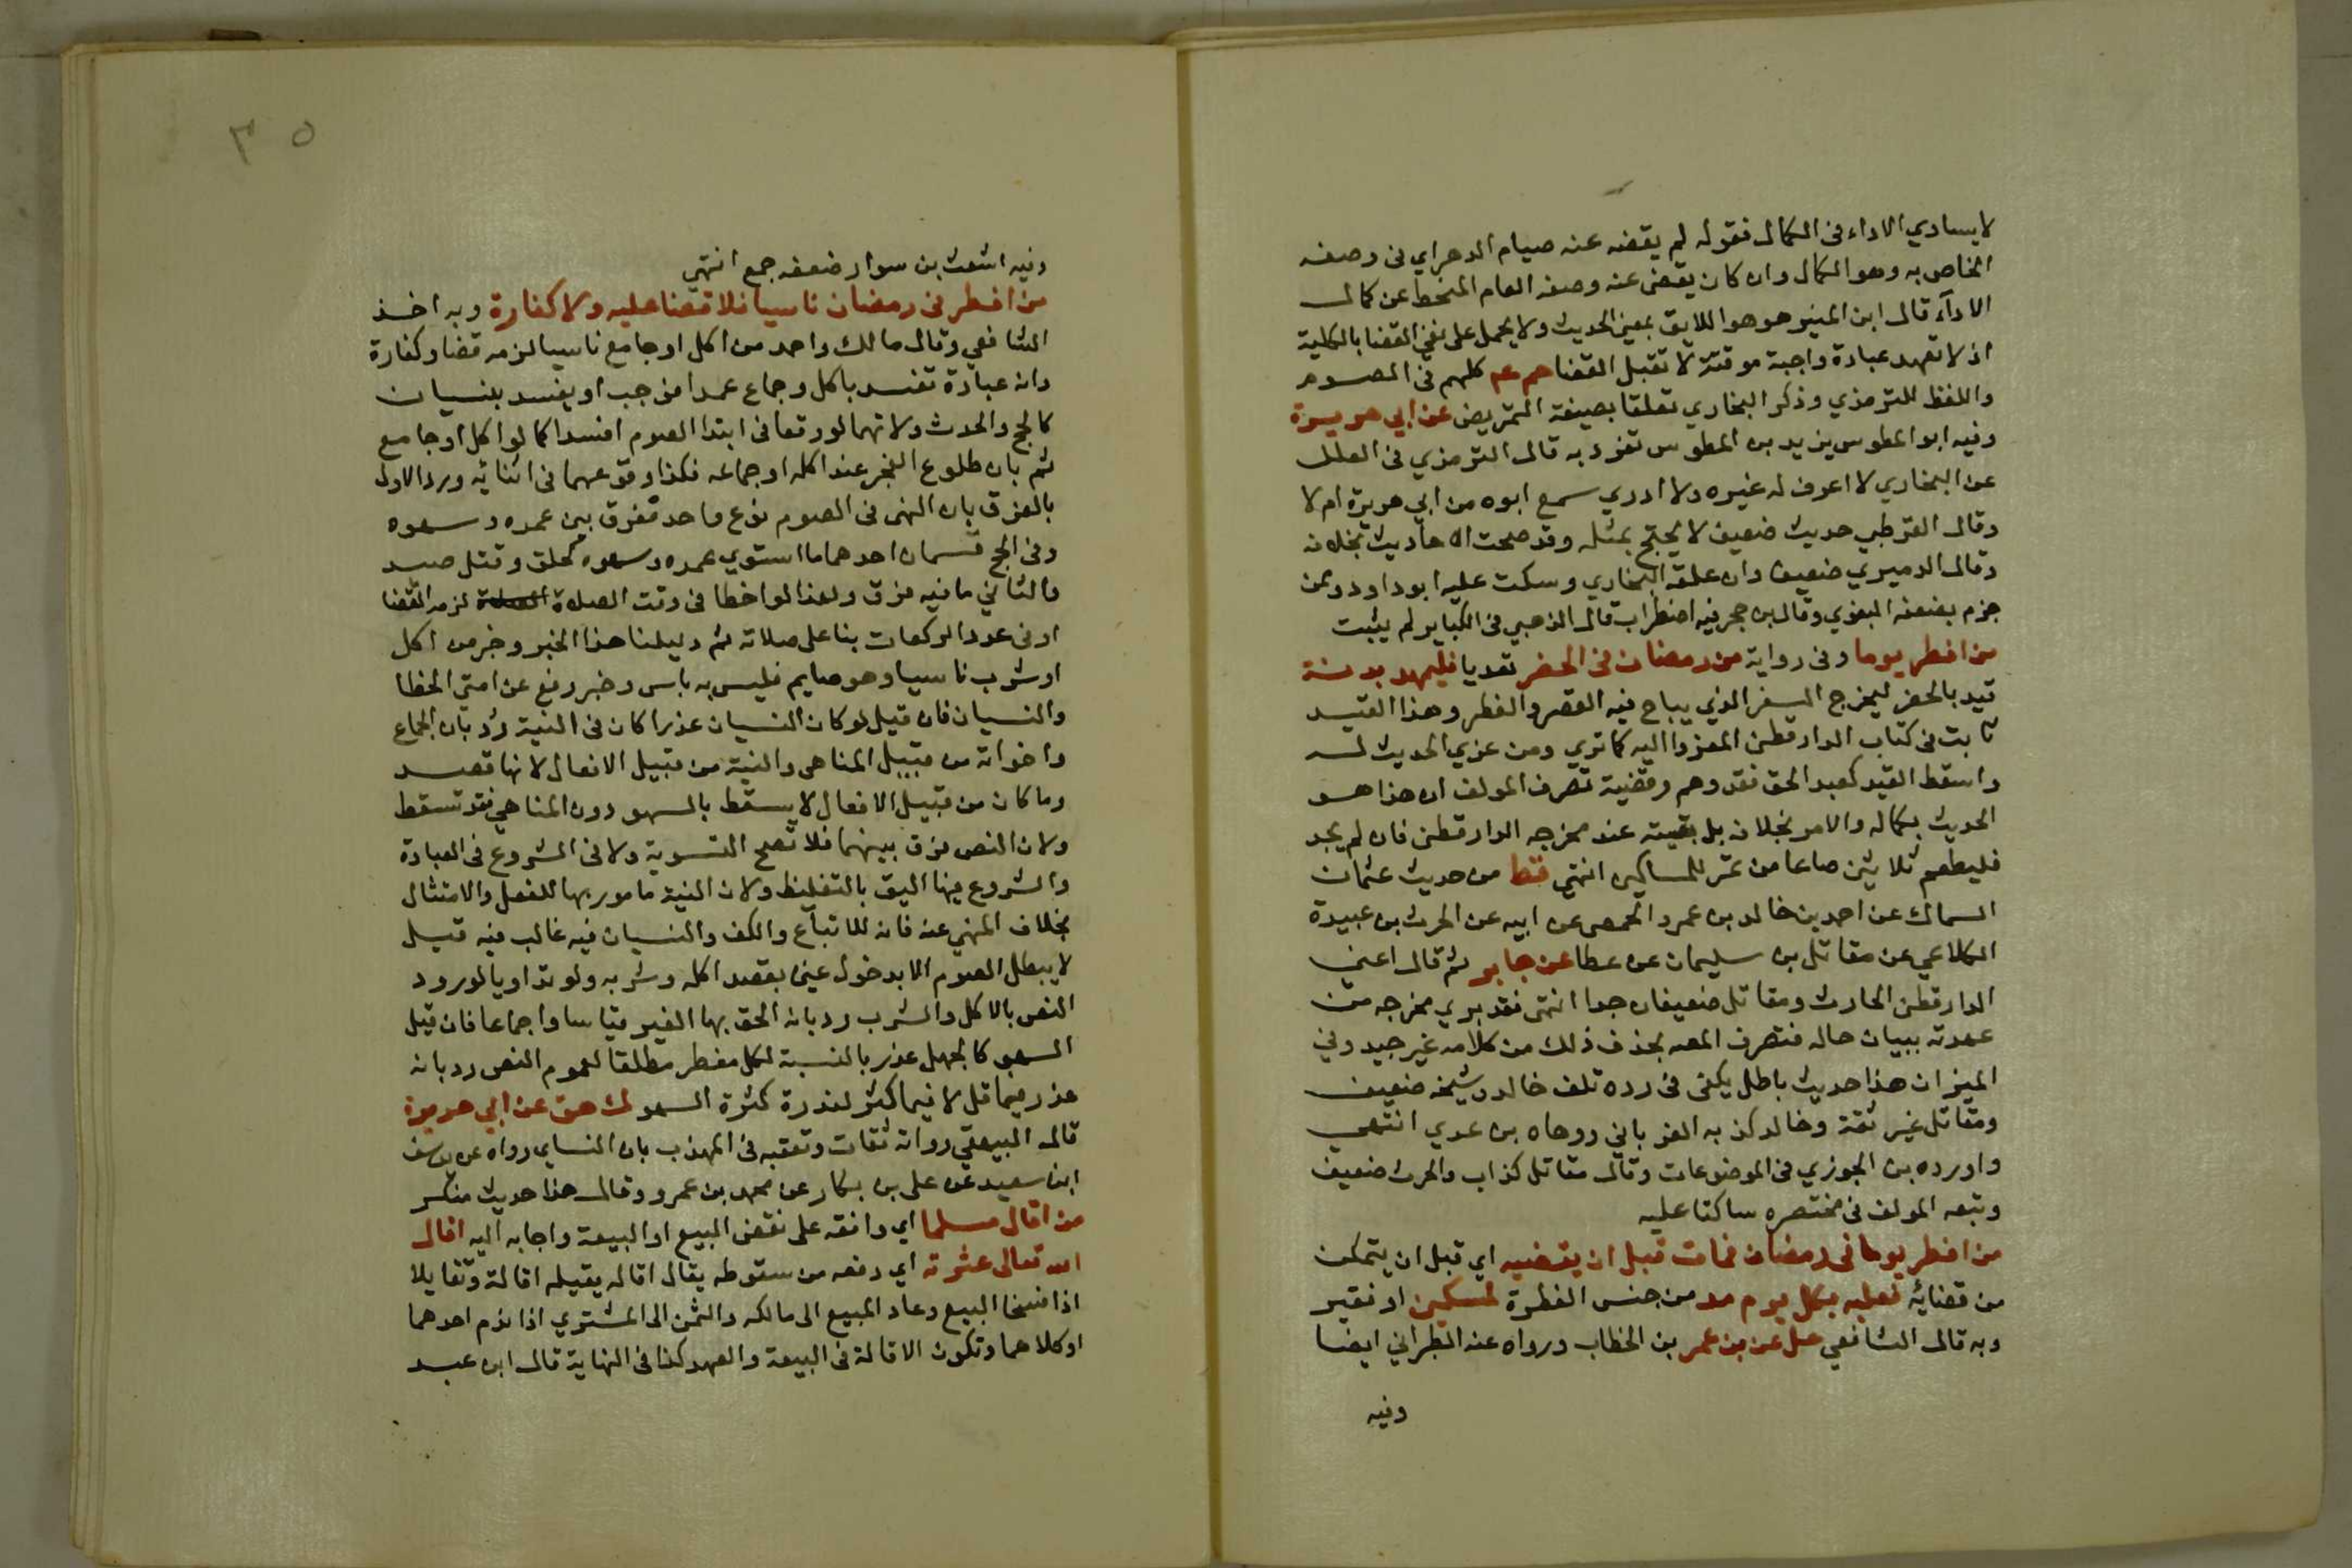 لا يساوي الاداء فى الكمال فقوله لم يقضه عنه صيام الدهر اي فى وصفه
الخاص به وهو الكمال وان كان يقضى عنه وصفه العام المنحط عن كمال
الادآء قال ابن المنير هو هو اللايق بمعنى الحديث ولا يحمل على نفي القضا بالكلية
اذ لا تعهد عبادة واجبة موقتة لا تقبل القضا حم عم كلهم فى الصوم
واللفظ للترمذي وذكر البخاري تعلقا بصيغة التمريض عن ابي هريرة
وفيه ابو المطوس يزيد بن المطوس تفرد به قال الترمذي فى العلل
عن البخاري لا اعرف له غيره ولا ادري سمع ابوه من ابي هريرة ام لا
وقال القرطبي حديث ضعيف لا يحتج بمثله وقد صحت الاحاديث بخلافه
وقال الدميري ضعيف وان علقه البخاري وسكت عليه ابو داود وممن
جزم بضعفه البغوي وقال بن حجر فيه اضطراب قال الذهبي فى الكباير لم يثبت
من افطر يوما وفى رواية من رمضان فى الحضر تعديا فليهد بدنة
قيد بالحضر ليخرج السفر الذي يباح فيه القصر والفطر وهذا القيد
ثابت فى كتاب الدارقطنى المعزوا اليه كما تري ومن عزي الحديث له
واسقط القيد كعبد الحق فقد وهم وقضية تصرف المولف ان هذا هو
الحديث بكماله والامر بخلافه بل بقيته عند مخرجه الدارقطنى فان لم يجد
فليطعم ثلاثين صاعا من تمر للمساكين انتهي قط من حديث عثمان
السماك عن احمد بن خالد بن عمرو الحمصى عن ابيه عن الحرث بن عبيدة
الكلاعي عن مقاتل بن سليمان عن عطا عن جابر ثم قال اعني
الدارقطنى الحارث ومقاتل ضعيفان جدا انتهى فقد بري مخرجه من
عهدته ببيان حاله فتصرف المصه بحذف ذلك من كلامه غير جيد وفي
الميزان هذا حديث باطل يكفى فى رده تلف خالد وشيخه ضعيف
ومقاتل غير ثقة وخالد كذبه الفرياني ووهاه بن عدي انتهي
واورده بن الجوزي فى الموضوعات وقال مقاتل كذاب والحرث ضعيف
وتبعه المولف فى مختصره ساكتا عليه
من افطر يوما فى رمضان فمات قبل ان يقضيه اي قبل ان يتمكن
من قضايه فعليه بكل يوم مد من جنس الفطرة لمسكين او فقير
وبه قال الشافعي حل عن بن عمر بن الخطاب ورواه عنه الطبراني ايضا
وفيه
٣٥
وفيه اشعث بن سوار ضعفه جمع انتهي
من افطر فى رمضان ناسيا فلا قضا عليه ولا كفارة وبه اخذ
الشافعي وقال مالك واحمد من اكل او جامع ناسيا لزمه قضا وكفارة
وانه عبادة تفسد باكل وجماع عمدا فوجب او يفسد بنسيان
كالحج والحدث ولانهما لو وقعا فى ابتدا الصوم افسدا كما لو اكل او جامع
ثم بان طلوع الفجر عند اكله او جماعه فكذا وقوعهما فى اثنايه ورد الاول
بالفرق بان النهى فى الصوم نوع واحد ففرق بين عمده وسهوه
وفى الحج قسمان احدهما ما استوي عمده وسهوه كحلق وقتل صيد
والثاني ما فيه فرق ولهذا لو اخطا فى وقت الصلاة لزمه القضا
او فى عدد الركعات بنا على صلاته ثم دليلنا هذا الخبر وخبر من اكل
او شرب ناسيا وهو صايم فليس به باس وخبر رفع عن امتي الخطا
والنسيان فان قيل لو كان النسيان عذرا كان فى النية رد بان الجماع
واخواته من قبيل المناهى والنية من قبيل الافعال لانها قصد
وما كان من قبيل الافعال لا يسقط بالسهو دون المناهي فقد تسقط
ولان النص فرق بينهما فلا تصح التسوية ولا فى الشروع فى العبادة
والشروع فيها اليق بالتغليظ ولان النية مامور بها للفعل والامتثال
بخلاف المنهي عنه فانه للاتباع والكف والنسيان فيه غالب فيه قيل
لا يبطل الصوم الا بدخول عين بقصد اكله وشربه ولو تداويا لورود
النص بالاكل والشرب رد بانه الحق بها الغير قياسا واجماعا فان قيل
السهو كالجهل عذر بالنسبة لكل مفطر مطلقا لعموم النص رد بانه
عذر فيما قل لا فيما كثر لندرة كثرة السهو ك هق عن ابي هريرة
قال البيهقي رواته ثقات وتعقبه فى المهذب بان النساي رواه عن يوسف
ابن سعيد عن على بن بكار عن محمد بن عمرو وقال هذا حديث منكر
من اقال مسلما اي وافقه على نقض البيع او البيعة واجابه اليه اقال
الله تعالى عثرته اي رفعه من سقوطه يقال اقاله يقيله اقالة وتقايلا
اذا فسخا البيع وعاد المبيع الى مالكه والثمن الى المشتري اذا ندم احدهما
او كلاهما وتكون الاقالة فى البيعة والعهد كذا فى النهاية قال ابن عبد